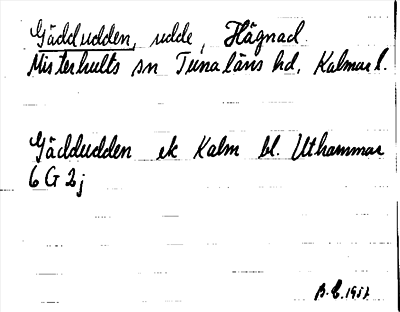 Gäddudden, udde, Hägnad
Misterhults sn Tunaläns hd. Kalmar l.
Gäddudden ek Kalm bl. Uthammar
6 G 2j